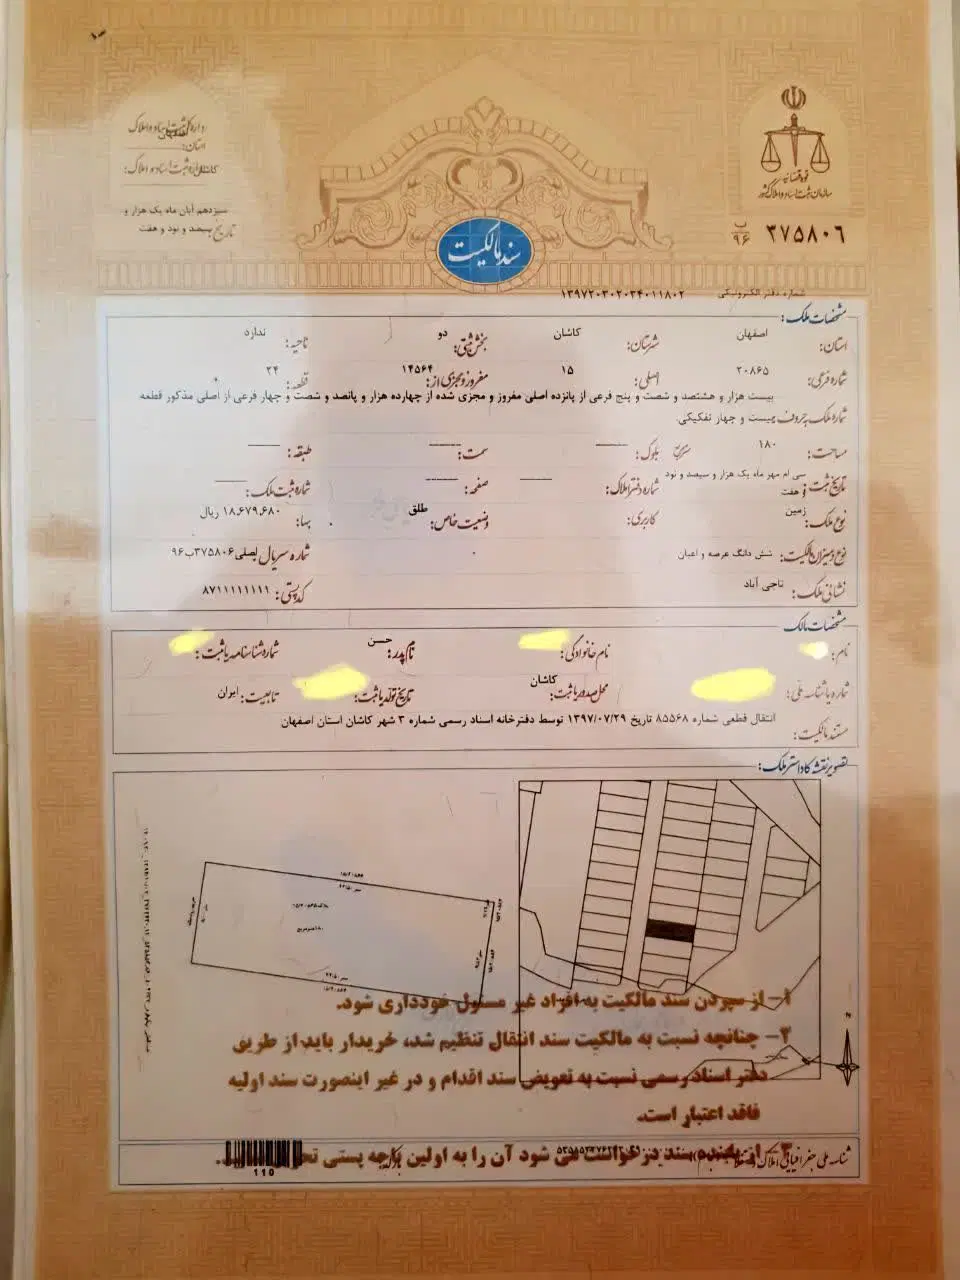 اداره کل ثبت اسناد و املاک
استان: اصفهان
اداره ثبت اسناد و املاک: کاشان
سیزدهم آبان ماه یک هزار و
تاریخ: سیصد و نود و هفت
قوه قضائیه
سازمان ثبت اسناد و املاک کشور
ب
۹۶ ۳۷۵۸۰۶
سند مالکیت
شماره دفتر الکترونیکی ۱۳۹۷۲۰۳۰۲۰۳۴۰۱۱۸۰۲
مشخصات ملک:
استان: اصفهان شهرستان: کاشان بخش ثبتی: دو ناحیه: ندارد
شماره فرعی: ۲۰۸۶۵ اصلی: ۱۵ مفروز و مجزی از: ۱۴۵۶۴ قطعه: ۲۴
بیست هزار و هشتصد و شصت و پنج فرعی از پانزده اصلی مفروز و مجزی شده از چهارده هزار و پانصد و شصت و چهار فرعی از اصلی مذکور قطعه
شماره ملک به حروف: بیست و چهار تفکیکی.
مساحت: ۱۸۰ مترمربع بلوک: سمت: طبقه:
تاریخ ثبت: سی ام مهر ماه یک هزار و سیصد و نود و هفت شماره دفتر املاک: صفحه: شماره ثبت ملک:
نوع ملک: زمین کاربری: وضعیت خاص: طلق بهاء: ۱۸,۶۷۹,۶۸۰ ریال
نوع و میزان مالکیت: شش دانگ عرصه و اعیان شماره سریال اصلی: ۳۷۵۸۰۶ب۹۶
نشانی ملک: تاجی آباد کدپستی: ۸۷۱۱۱۱۱۱۱۱
مشخصات مالک
نام: نام خانوادگی: نام پدر: حسن شماره شناسنامه یا ثبت:
شماره یا شناسه ملی: محل صدور یا ثبت: کاشان تاریخ تولد یا ثبت: تابعیت: ایران
مستند مالکیت: انتقال قطعی شماره ۸۵۵۶۸ تاریخ ۱۳۹۷/۰۷/۲۹ توسط دفترخانه اسناد رسمی شماره ۳ شهر کاشان استان اصفهان
تصویر نقشه کاداستر ملک:
۱- از سپردن سند مالکیت به افراد غیر مسئول خودداری شود.
۲- چنانچه نسبت به مالکیت سند انتقال تنظیم شد، خریدار باید از طریق
دفتر اسناد رسمی نسبت به تعویض سند اقدام و در غیر اینصورت سند اولیه
فاقد اعتبار است.
شناسه ملی جغرافیایی املاک
۳- از یابنده سند درخواست می شود آن را به اولین باجه پستی
110